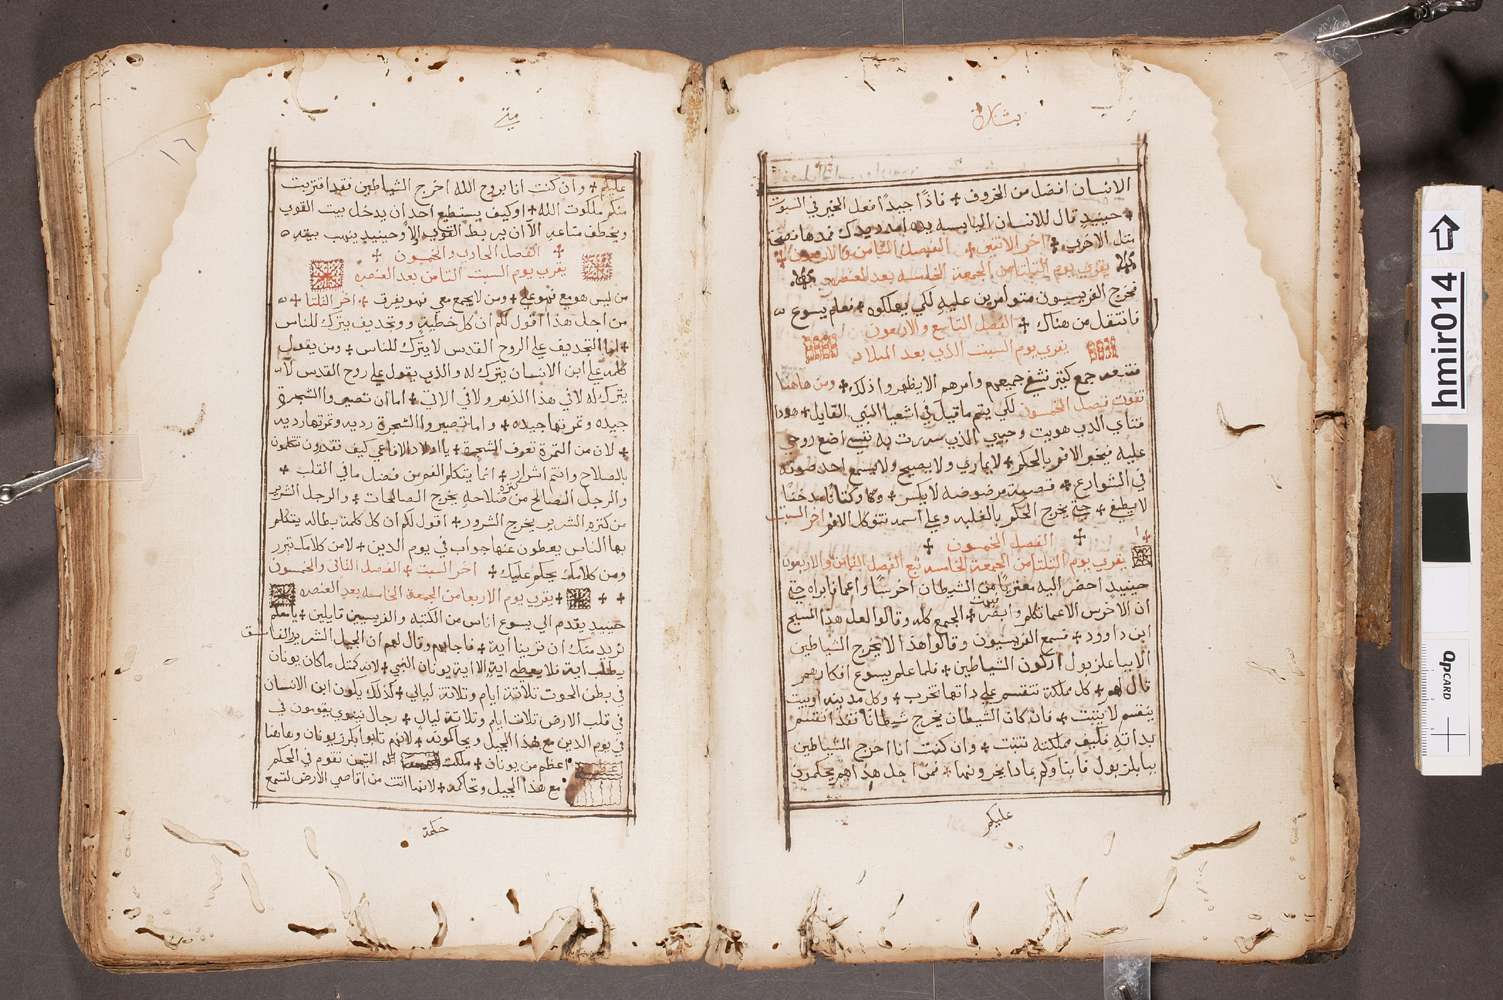 بشارة
الانسان افضل من الخروف + فاذًا جيدًا فعل الخير في السبوت
+ حينيد قال للانسان اليابسه يده امدد يدك فمدها فصحت
متل الاخرى + اخر الاتنين + الفصل الثامن والاربعون +
يقرى يوم التلتا من الجمعة الخامسه بعد العنصره
فخرج الفريسيون متوامرين عليه لكي يهلكوه + فعلم يسوع
فانتقل من هناك + الفصل التاسع والاربعون
يقرى يوم السبت الذي بعد الميلاد
فتبعه جمع كتير فشفى جميعهم وامرهم الا يظهروا ذلك + ومن هاهنا
تفوت فصل الخمسون لكي يتم ما قيل في اشعيا النبي القايل + هودا
فتاي الذي هويت وحبيبي الذي سررت به نفسي اضع روحي
عليه فيخبر الامم بالحكم + لا يماري ولا يصيح ولا يسمع احد صوته
في الشوارع + قصبة مرضوضه لا يكسر + وكتانًا مدخنًا
لا يطفي + حتى يخرج الحكم بالغلبه وعلى اسمه تتوكل الامم اخر السبت
+ الفصل الخمسون +
يقرى يوم التلتا من الجمعة الخامسه تبع الفصل الثامن والاربعون
حينيد احضر اليه معتريًا من الشيطان اخرسًا واعما فابراه حتى
ان الاخرس الاعما تكلم وابصر + فبهت الجمع كله وقالوا لعل هذا المسيح
ابن داوود + فسمع الفريسيون وقالوا هذا لا يخرج الشياطين
الا بباعلزبول اركون الشياطين + فلما علم يسوع افكارهم
قال لهم + كل مملكة تنقسم على داتها تخرب + وكل مدينه او بيت
ينقسم لا يثبت + فان كان الشيطان يخرج شيطانًا فقد انقسم
بداته فكيف مملكته تثبت + وان كنت انا اخرج الشياطين
بباعلزبول فابناوكم بماذا يخرجونها + فمن اجل هذا هم يحكمون
عليكم
متى
١٦
عليكم + وان كنت انا بروح الله اخرج الشياطين فقد اقتربت
منكم ملكوت الله + او كيف يستطيع احد ان يدخل بيت القوي
ويخطف متاعه الا ان يربط القوي اولًا وحينيد ينهب بيته
+ الفصل الحادي والخمسون +
يقرى يوم السبت التامن بعد العنصره
من ليس هو معي فهو علي + ومن لا يجمع معي فهو يفرق + اخر التلتا +
من اجل هذا اقول لكم ان كل خطية وتجديف يترك للناس
+ واما التجديف على الروح القدس لا يترك للناس + ومن يقول
كلمه على ابن الانسان يترك له والذي يقول على روح القدس لا
يترك له لا في هذا الدهر ولا في الاتي + اما ان تصيروا الشجرة
جيده وتمرتها جيده + واما تصيروا الشجرة رديه وتمرتها رديه
+ لان من التمرة تعرف الشجرة + يا اولاد الافاعي كيف تقدرون تتكلمون
بالصلاح وانتم اشرار + انما يتكلم الفم من فضل ما في القلب +
والرجل الصالح من كنزة صلاحه يخرج الصالحات + والرجل الشرير
من كنزه الشرير يخرج الشرور + اقول لكم ان كل كلمة بطاله يتكلم
بها الناس يعطون عنها جواب في يوم الدين + لان من كلامك تبرر
ومن كلامك يحكم عليك + اخر السبت + الفصل التاني والخمسون
+ + يقرى يوم الاربعا من الجمعة الخامسه بعد العنصره
حينيد تقدم الى يسوع اناس من الكتبه والفريسيين قايلين + يا معلم
نريد منك ان ترينا اية + فاجابهم وقال لهم ان الجيل الشرير الفاسق
يطلب اية فلا يعطى اية الا اية يونان النبي + لانه كمتل ما كان يونان
في بطن الحوت تلاتة ايام وتلاتة ليالي + كذلك يكون ابن الانسان
في قلب الارض تلات ايام وتلاتة ليالي + رجال نينوي يقومون في
في يوم الدين مع هذا الجيل ويحاكمونه + لانهم تابوا بكرز يونان وهاهنا
اعظم من يونان + ملكت التيمن تقوم في الحكم
مع هذا الجيل وتحاكمه + لانها اتت من اقاصي الارض لتسمع
حكمة
hmir014
QPCARD